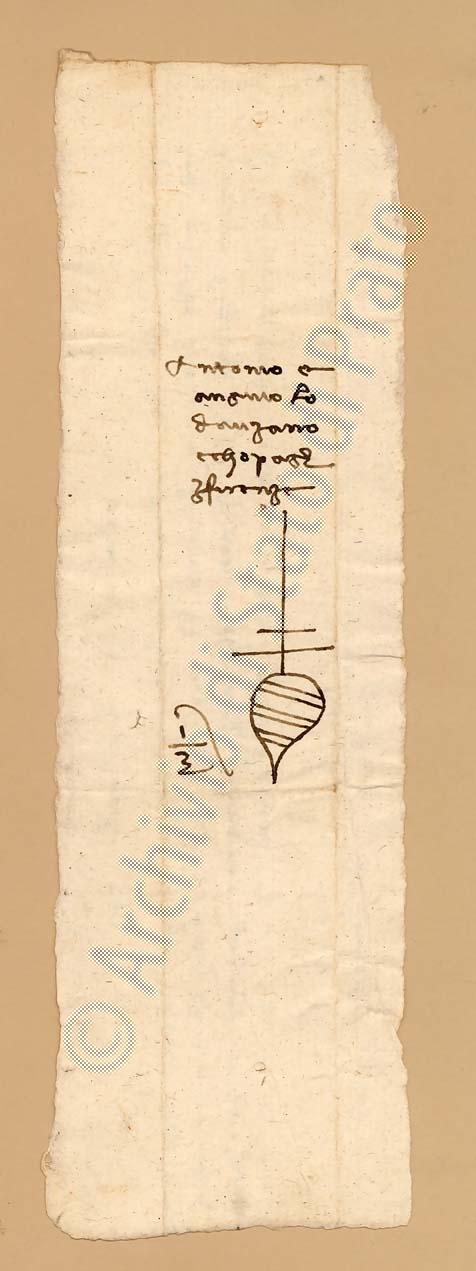 Antonio e
angnolo
da uzano
e chopagi
i firenze
© Archivio di Stato di Prato